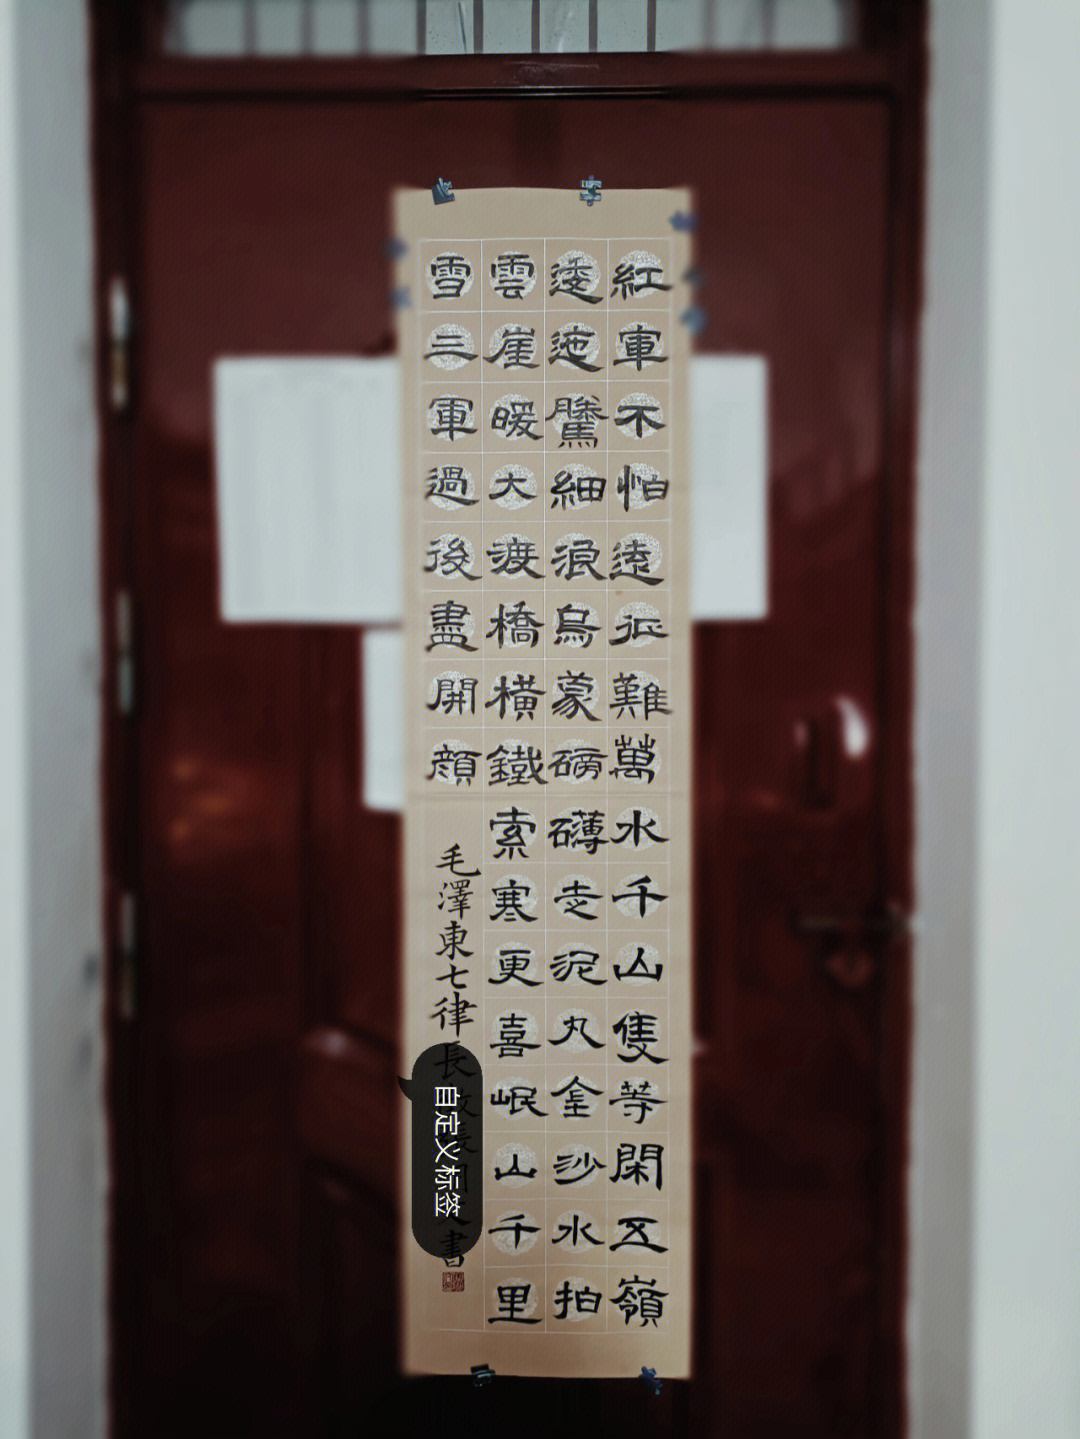 紅軍不怕遠征難萬水千山隻等閑五嶺
逶迤騰細浪烏蒙磅礴走泥丸金沙水拍
雲崖暖大渡橋橫鐵索寒更喜岷山千里
雪三軍過後盡開顔
毛澤東七律長書
自定义标签